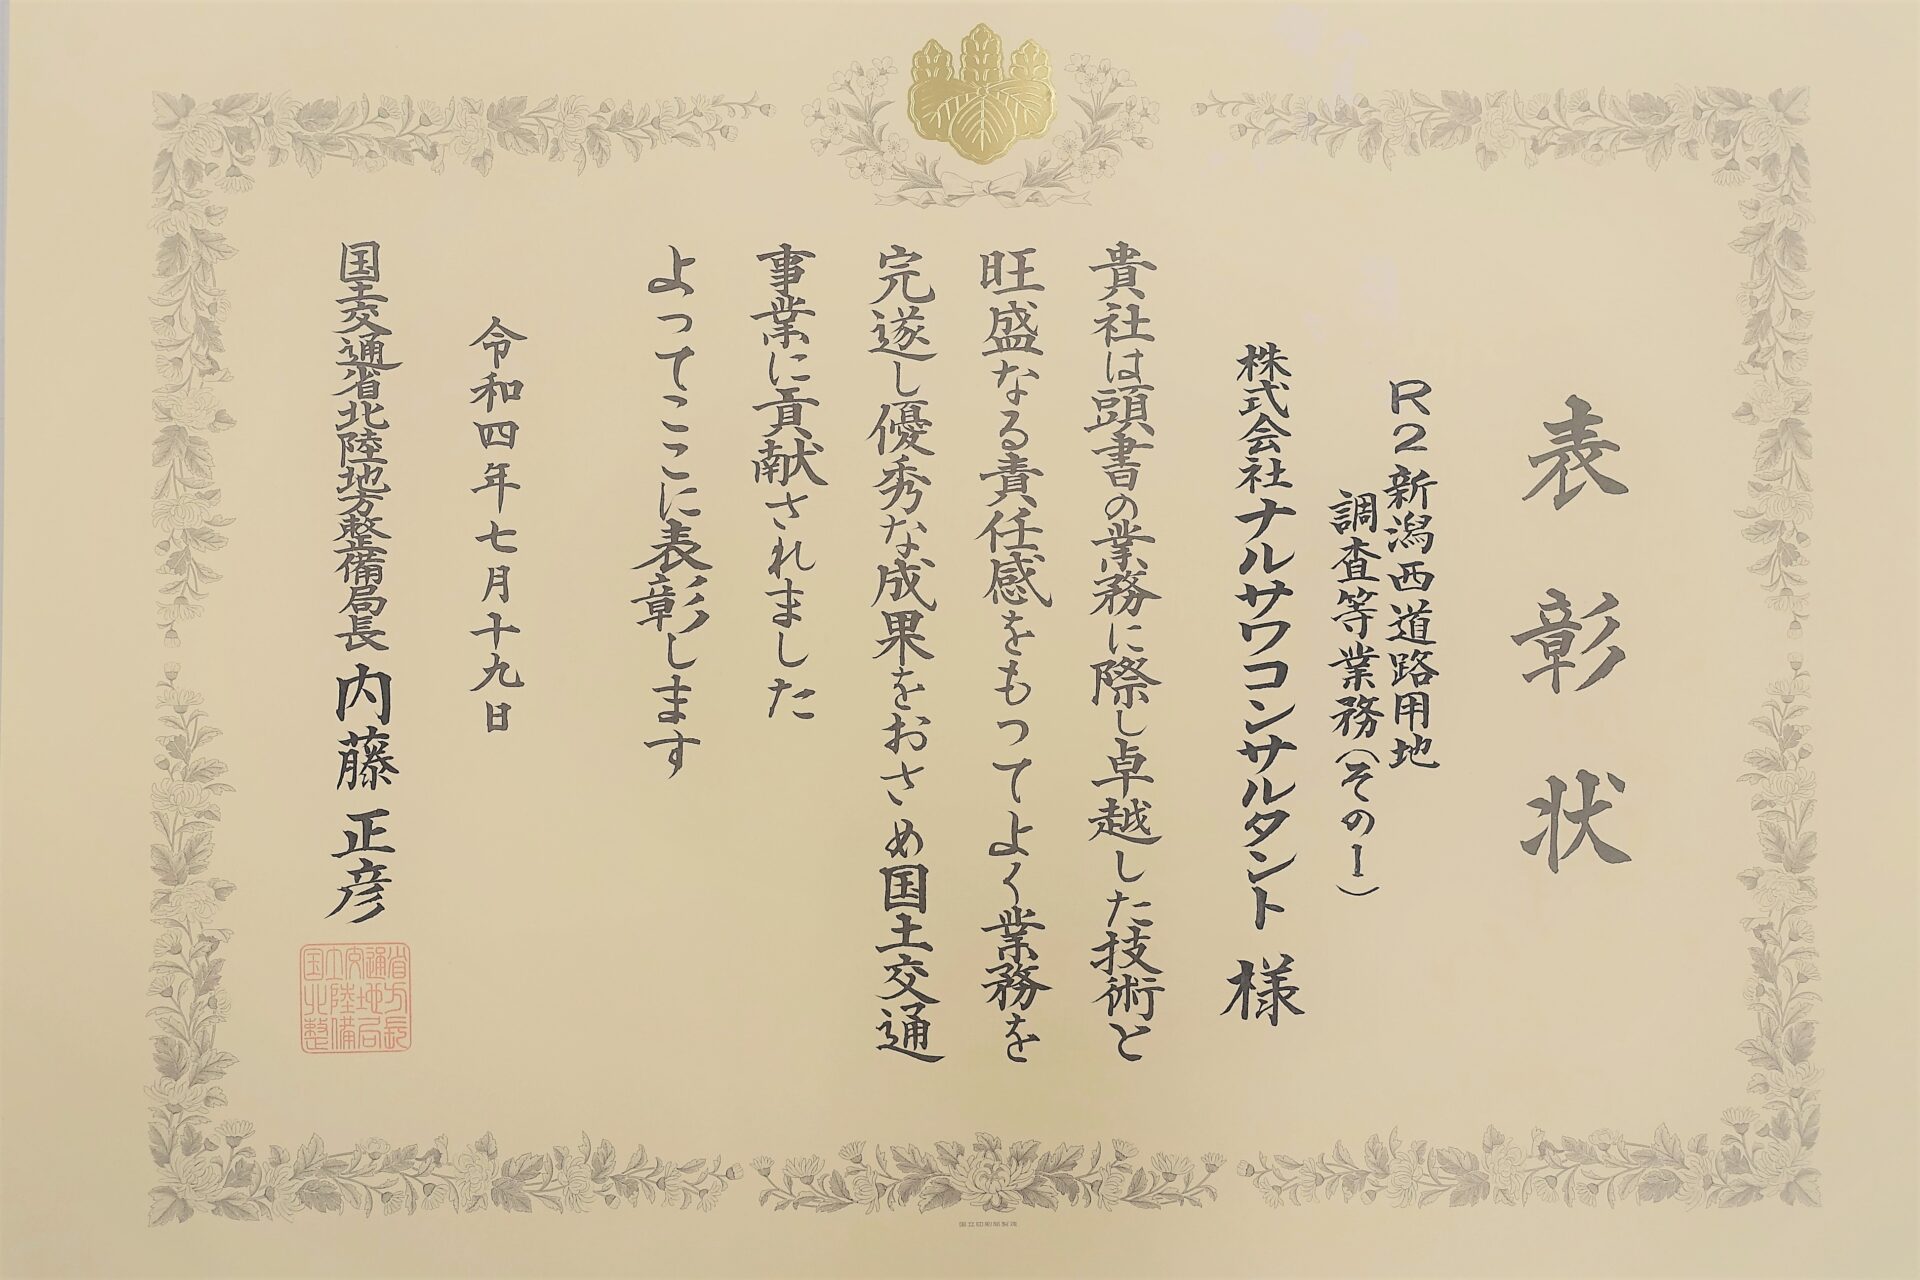 表彰状
R2新潟西道路用地
調査等業務(その1)
株式会社ナルサワコンサルタント 様
貴社は頭書の業務に際し卓越した技術と
旺盛なる責任感をもつてよく業務を
完遂し優秀な成果をおさめ国土交通
事業に貢献されました
よってここに表彰します
令和四年七月十九日
国土交通省北陸地方整備局長 内藤正彦
国立印刷局製造